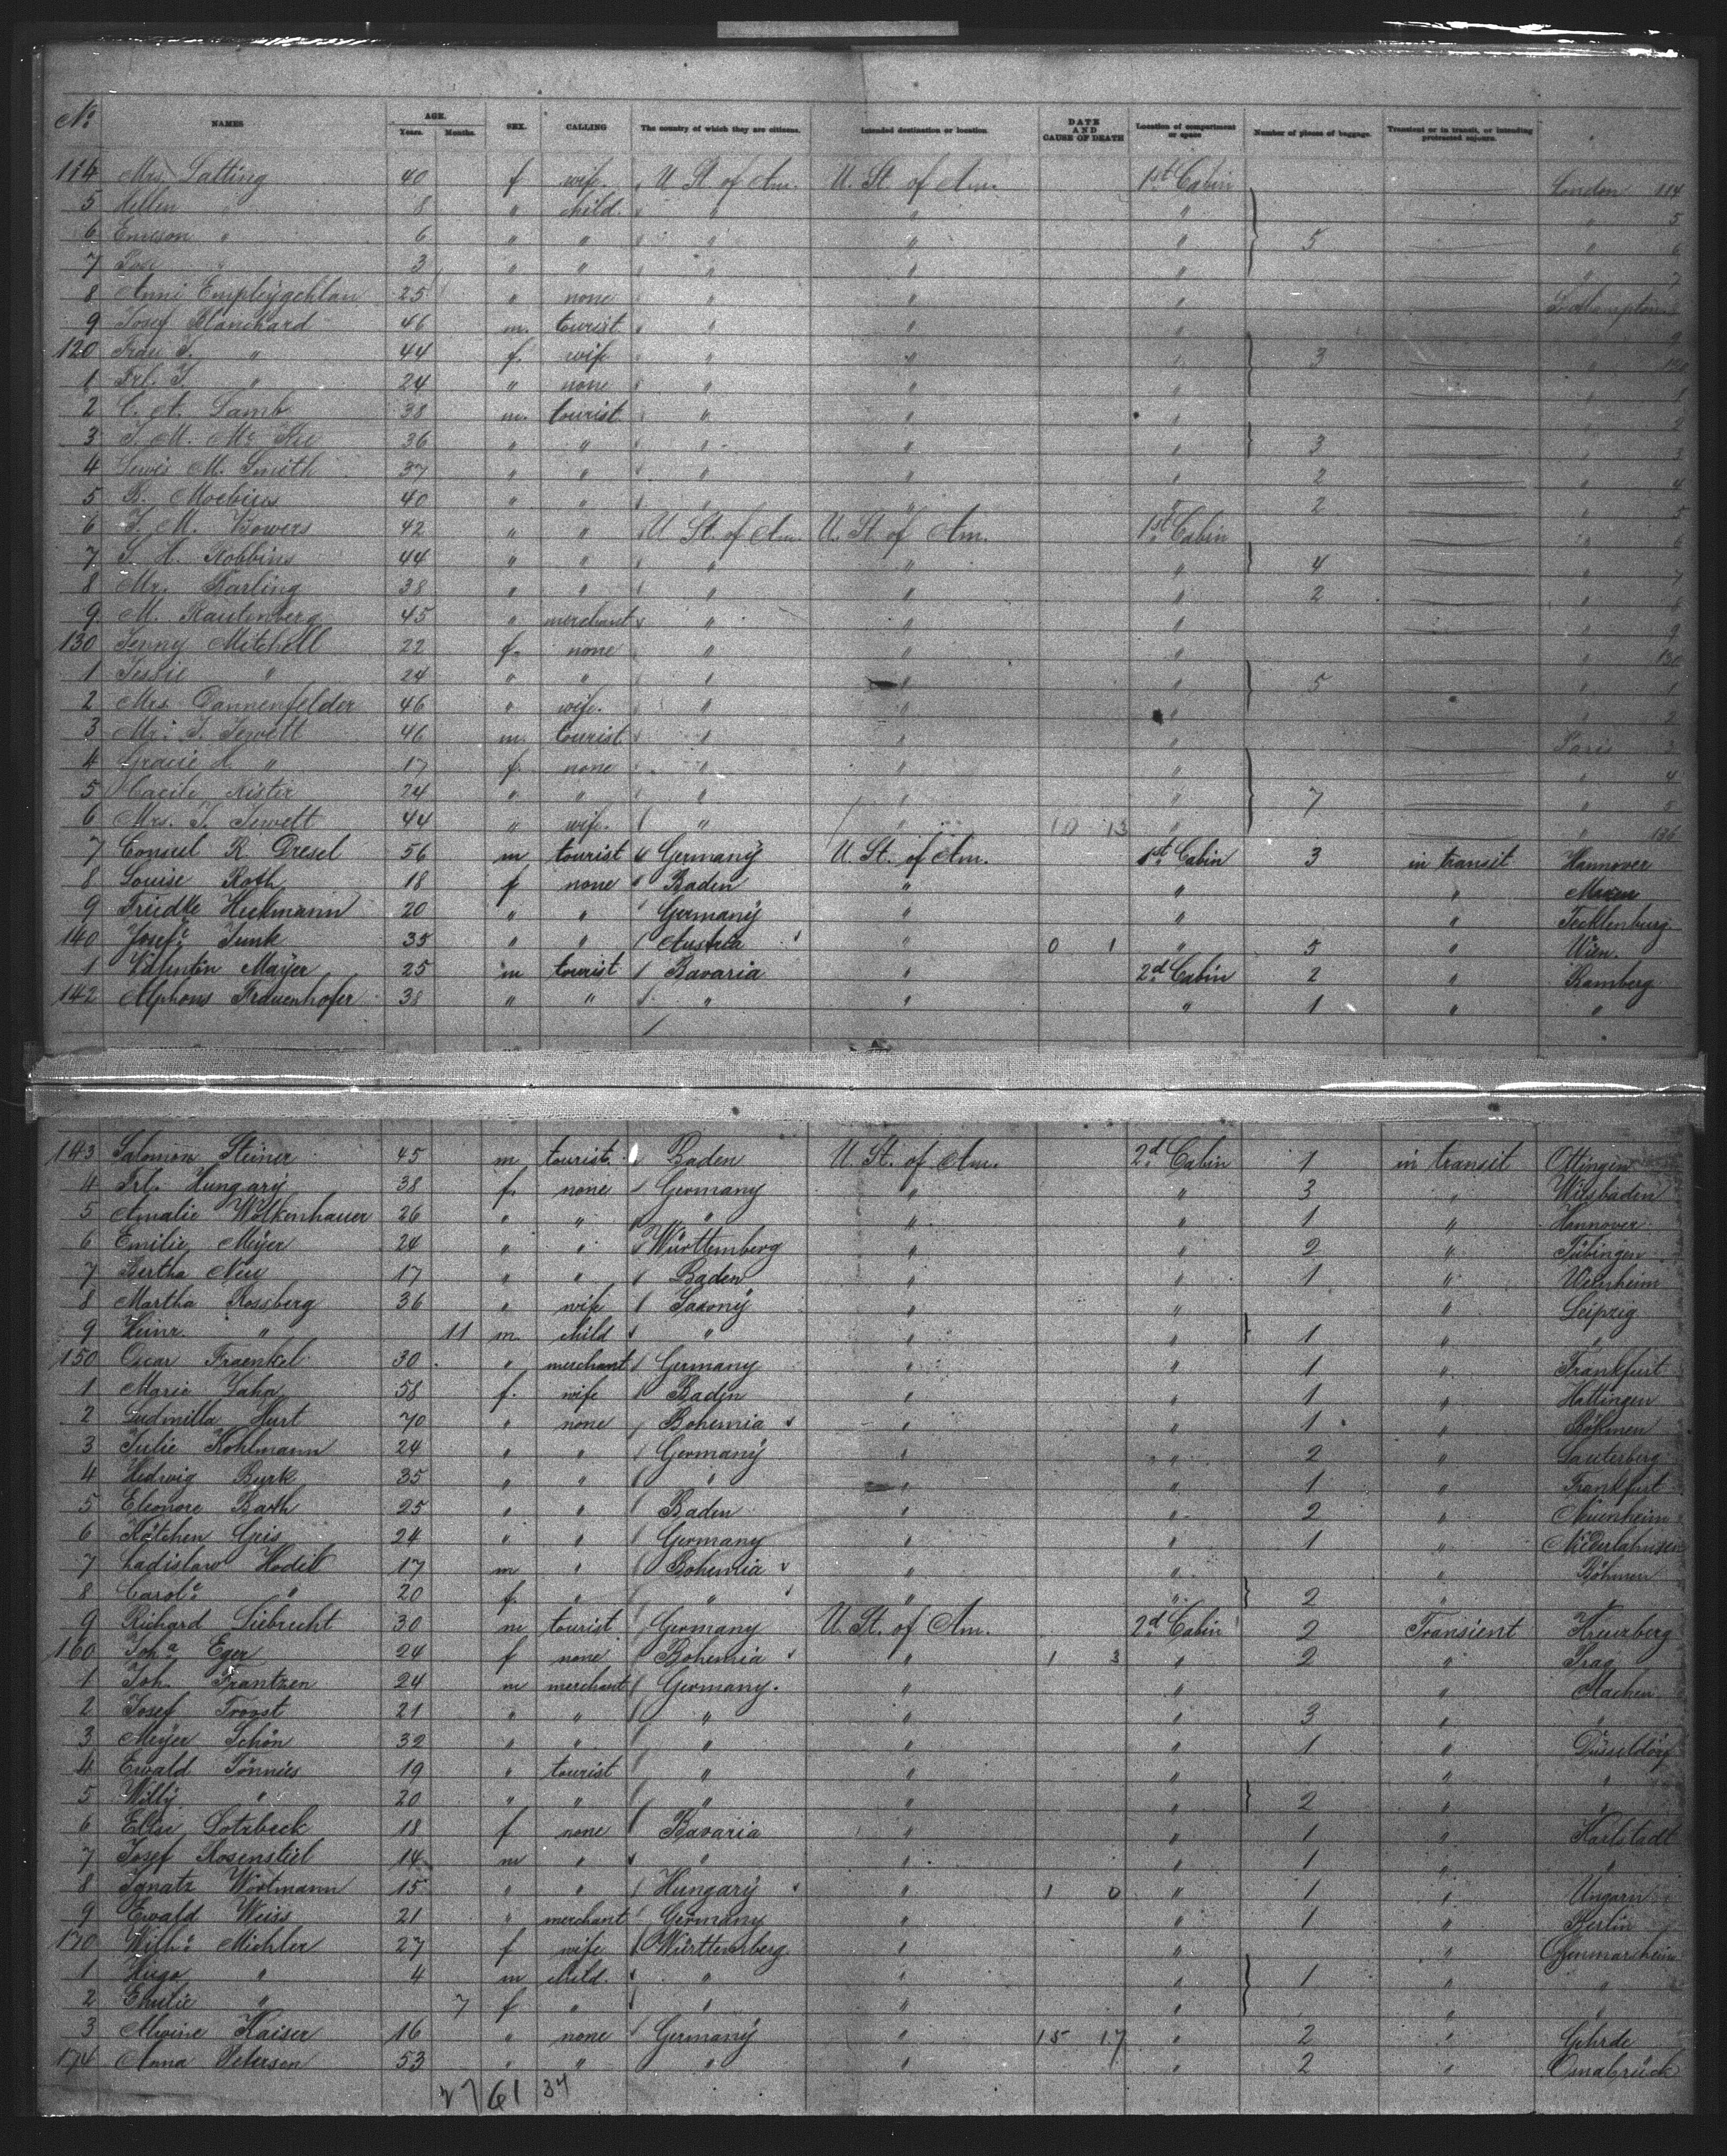 No. NAMES AGE. Years. Months. SEX. CALLING The country of which they are citizens. Intended destination or location DATE AND CAUSE OF DEATH Location of compartment or space Number of pieces of baggage. Transient or in transit, or intending protracted sojourn.
114 Mrs. Latting 40 f wife U. St. of Am. U. St. of Am. 1st Cabin London 114
5 Hellen " 8 " child " " " " 5
6 Emerson " 6 " " " " " 5 " 6
7 " 3 " " " " " " 7
8 Anni 25 " none " " " 8
9 Josef Blanchard 46 m. tourist " " " " 9
120 Frau J. " 44 f. wife " " " 3 " 120
1 Frl. J. " 24 " none " " " " 1
2 C. A. Lamb 38 m. tourist " " " " 2
3 J. M. Mc Kee 36 " " " " " 3 " 3
4 Lewis M. Smith 37 " " " " " 2 " 4
5 B. Moebius 40 " " " " " 2 " 5
6 J. M. Bowers 42 " " U. St. of Am. U. St. of Am. 1st Cabin " 6
7 S. H. Robbins 44 " " " " " 4 " 7
8 Mr. Barling 38 " " " " " 2 " 8
9 M. Rautenberg 45 " merchant " " " " 9
130 Jenny Mitchell 22 f. none " " " " 130
1 Jessie " 24 " " " " " 5 " 1
2 Mrs. Dannenfelder 46 " wife. " " " " 2
3 Mr. J. Jewett 46 m. tourist " " " Paris 3
4 Gracie A. " 17 f. none " " " " 4
5 Cacile Nister 24 " " " " " 7 " 5
6 Mrs. J. Jewett 44 " wife. " " 10 13 " " 136
7 Consul R. Dresel 56 m tourist Germany U. St. of Am. 1st Cabin 3 in transit Hannover
8 Louise Roth 18 f none Baden " " "
9 Friedke Heckmann 20 " " Germany " " " Tecklenburg
140 Josefe Junk 35 " " Austria " 0 1 " 5 " Wien.
1 Valentin Mayer 25 m tourist Bavaria " 2d Cabin 2 " Bamberg
142 Alphons Frauenhofer 38 " " " " " 1 " "
143 Salomon Steiner 45 m tourist Baden U. St. of Am. 2d Cabin 1 in transit Ottingen
4 Frl. Hungary 38 f. none Germany " " 3 " Wiesbaden
5 Amalie Wolkenhauer 26 " " " " " 1 " Hannover
6 Emilie Meyer 24 " " Württemberg " " 2 " Tübingen
7 Bertha Neu 17 " " Baden " " 1 " Weinheim
8 Martha Rossberg 36 " wife Saxony " " " Leipzig
9 Heinr. " 11 m. child " " " 1 " "
150 Oscar Fraenkel 30 " merchant Germany " " 1 " Frankfurt
1 Marie Zahn 58 f. wife Baden " " 1 " Hattingen
2 Ludmilla Hurt 70 " none Bohemia " " 1 " Böhmen
3 Julie Kohlmann 24 " " Germany " " 2 " Lauterberg
4 Hedwig Burk 35 " " " " " 1 " Frankfurt
5 Eleonore Barth 25 " " Baden " " 2 " Neuenheim
6 Kätchen Geis 24 " " Germany " " 1 "
7 Ladislaw Hodik 17 m " Bohemia " " " Böhmen
8 Carole " 20 f. " " " " 2 " "
9 Richard Liebrecht 30 m tourist Germany U. St. of Am. 2d Cabin 2 Transient Kreuzberg
160 Joha Eger 24 f none Bohemia " 1 3 " 2 " Prag
1 Joh. Frantzen 24 m merchant Germany. " " " Aachen
2 Josef Trost 21 " " " " " 3 " "
3 Meyer Schön 32 " " " " " 1 " Düsseldorf
4 Ewald Tönnies 19 " tourist " " " " "
5 Willy " 20 " " " " " 2 " "
6 Elise Lotzbeck 18 f none Bavaria " " 1 " Karlstadt
7 Josef Rosenstiel 14 m " " " " 1 " "
8 Ignatz Wortmann 15 " " Hungary " 1 0 " 1 " Ungarn
9 Ewald Weiss 21 " merchant Germany " " 1 " Berlin
170 Wilhe Michler 27 f wife Württemberg " " "
1 Hugo " 4 m child. " " " 1 " "
2 Emilie " 7 f " " " " " "
3 Alwine Kaiser 16 " none Germany " 15 17 " 2 " Gehrde
174 Anna Petersen 53 " " " " " 2 " Osnabrück
27 61 34